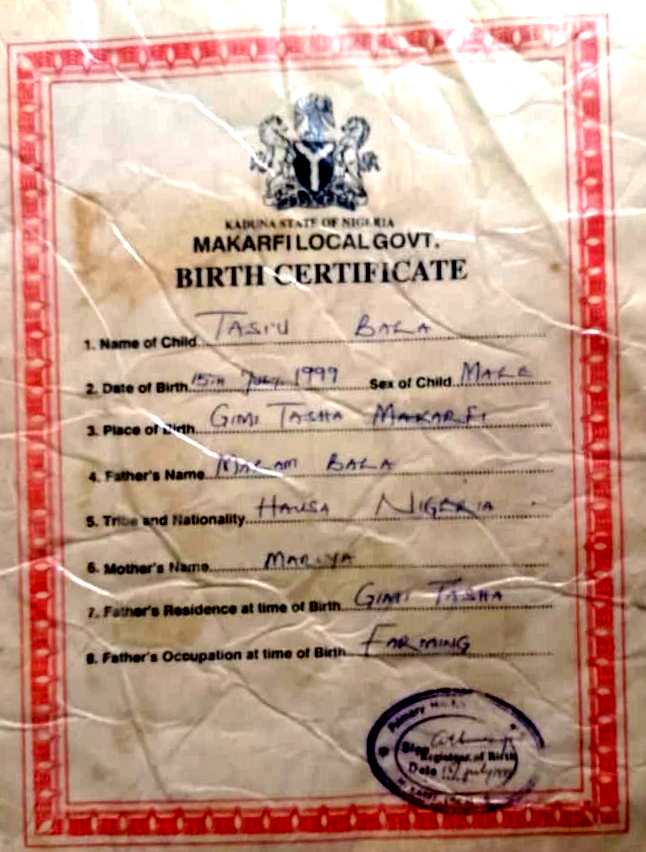 KADUNA STATE OF NIGERIA
MAKARFI LOCAL GOVT.
BIRTH CERTIFICATE
1. Name of Child. TASIU BALA
2. Date of Birth. 15th July, 1999 Sex of Child. MALE
3. Place of Birth. GIMI TASHA MAKARFI
4. Father's Name MALAM BALA
5. Tribe and Nationality. HAUSA NIGERIA
6. Mother's Name MARIYA
7. Father's Residence at time of Birth. GIMI TASHA
8. Father's Occupation at time of Birth FARMING
Primary
Sign
Registrar of Birth
Date July